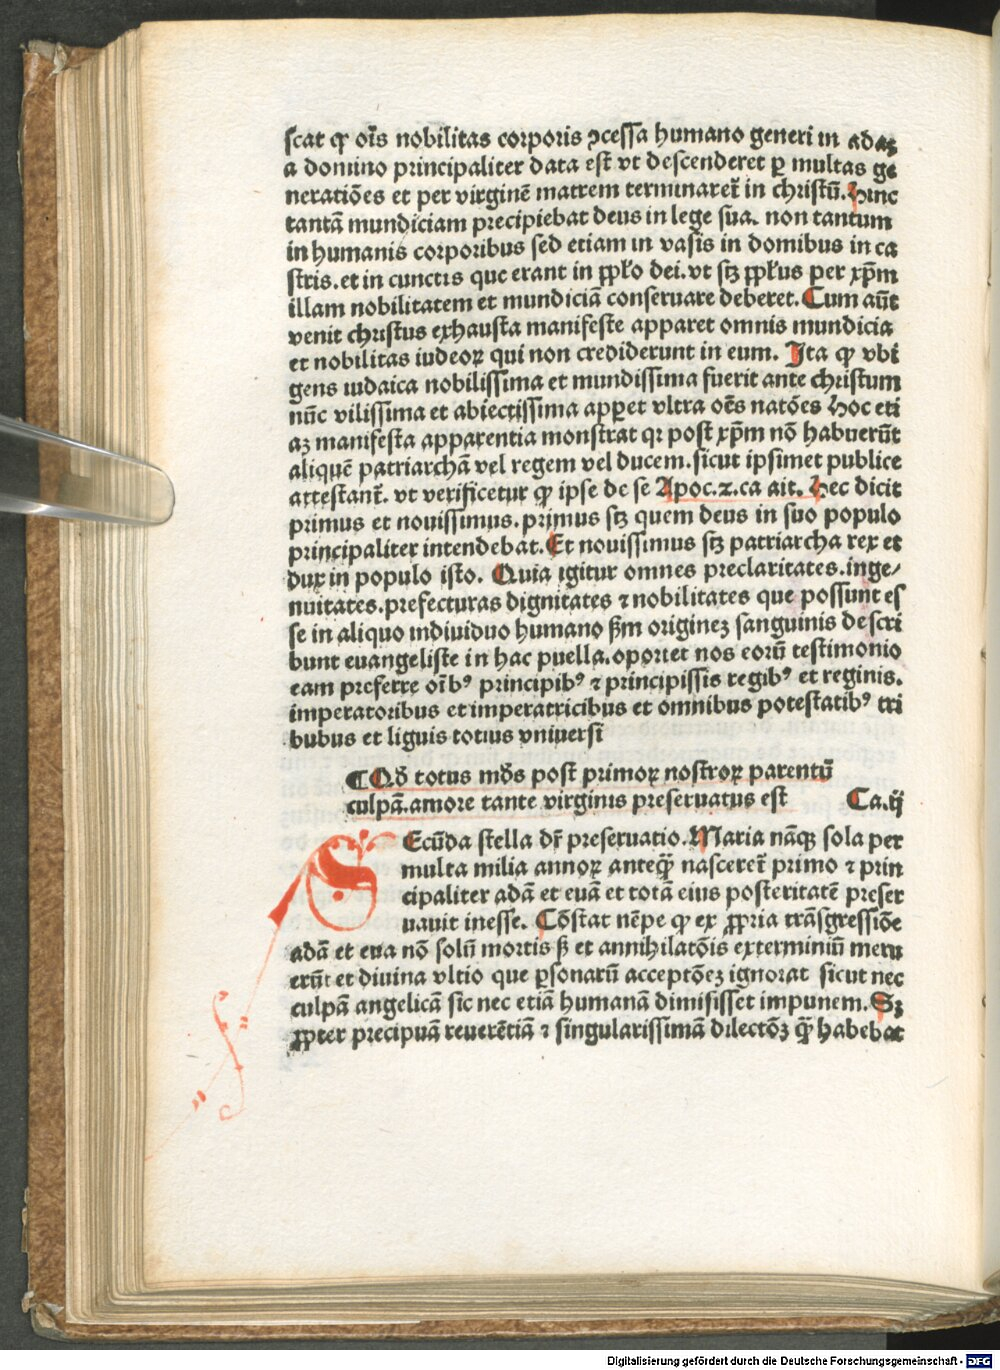 scat ꝙ oı̄s nobilitas corporis ꝯcessa humano generi in adaꝫ
a domino principaliter data est vt descenderet ꝑ multas ge
neratiōes et per virginē matrem terminaret᷑ in christū. Hinc
tantā mundiciam precipiebat deus in lege sua. non tantum
in humanis corporibus sed etiam in vasis in domibus in ca
stris. et in cunctis que erant in ꝓpl̄o dei. vt scꝫ ꝓpl̄us per xp̄m
illam nobilitatem et mundiciā conseruare deberet. Cum aūt
venit christus exhausta manifeste apparet omnis mundicia
et nobilitas iudeoꝝ qui non crediderunt in eum. Ita ꝙ vbi
gens iudaica nobilissima et mundissima fuerit ante christum
nūc vilissima et abiectissima apꝑet vltra oēs natōes Hoc eti
aꝫ manifesta apparentia monstrat qꝛ post xp̄m nō habuerūt
aliquē patriarchā vel regem vel ducem. sicut ipsimet publice
attestant᷑. vt verificetur ꝙ ipse de se Apoc. 2. ca ait. Hec dicit
primus et nouissimus. primus scꝫ quem deus in suo populo
principaliter intendebat. Et nouissimus scꝫ patriarcha rex et
dux in populo isto. Quia igitur omnes preclaritates. inge/
nuitates. prefecturas dignitates ⁊ nobilitates que possunt es
se in aliquo indiuiduo humano ẜm origineꝫ sanguinis descri
bunt euangeliste in hac puella. oportet nos eorū testimonio
eam preferre oı̄bꝰ principibꝰ ⁊ principissis regibꝰ et reginis.
imperatoribus et imperatricibus et omnibus potestatibꝰ tri
bubus et liguis totius vniuersi
¶ Qd̄ totus mūds post primoꝝ nostroꝝ parentū
culpā. amore tante virginis preseruatus est Ca. ij
SEcūda stella dr̄ preseruatio. Maria nāqꝫ sola per
multa milia annoꝝ anteqꝫ̄ nasceret᷑ primo ⁊ prin
cipaliter adā et euā et totā eius posteritatē preser
uauit inesse. Cōstat nēpe ꝙ ex ꝓpria trāsgressiōe
adā et eua nō solū mortis ẜ et annihilatōis exterminiū meru
erūt et diuina vltio que ꝑsonarū acceptōeꝫ ignorat sicut nec
culpā angelicā sic nec etiā humanā dimisisset impunem. Sꝫ
ꝓpter precipuā reuerētiā ⁊ singularissimā dilectōꝫ quā habebat
Digitalisierung gefördert durch die Deutsche Forschungsgemeinschaft - DFG